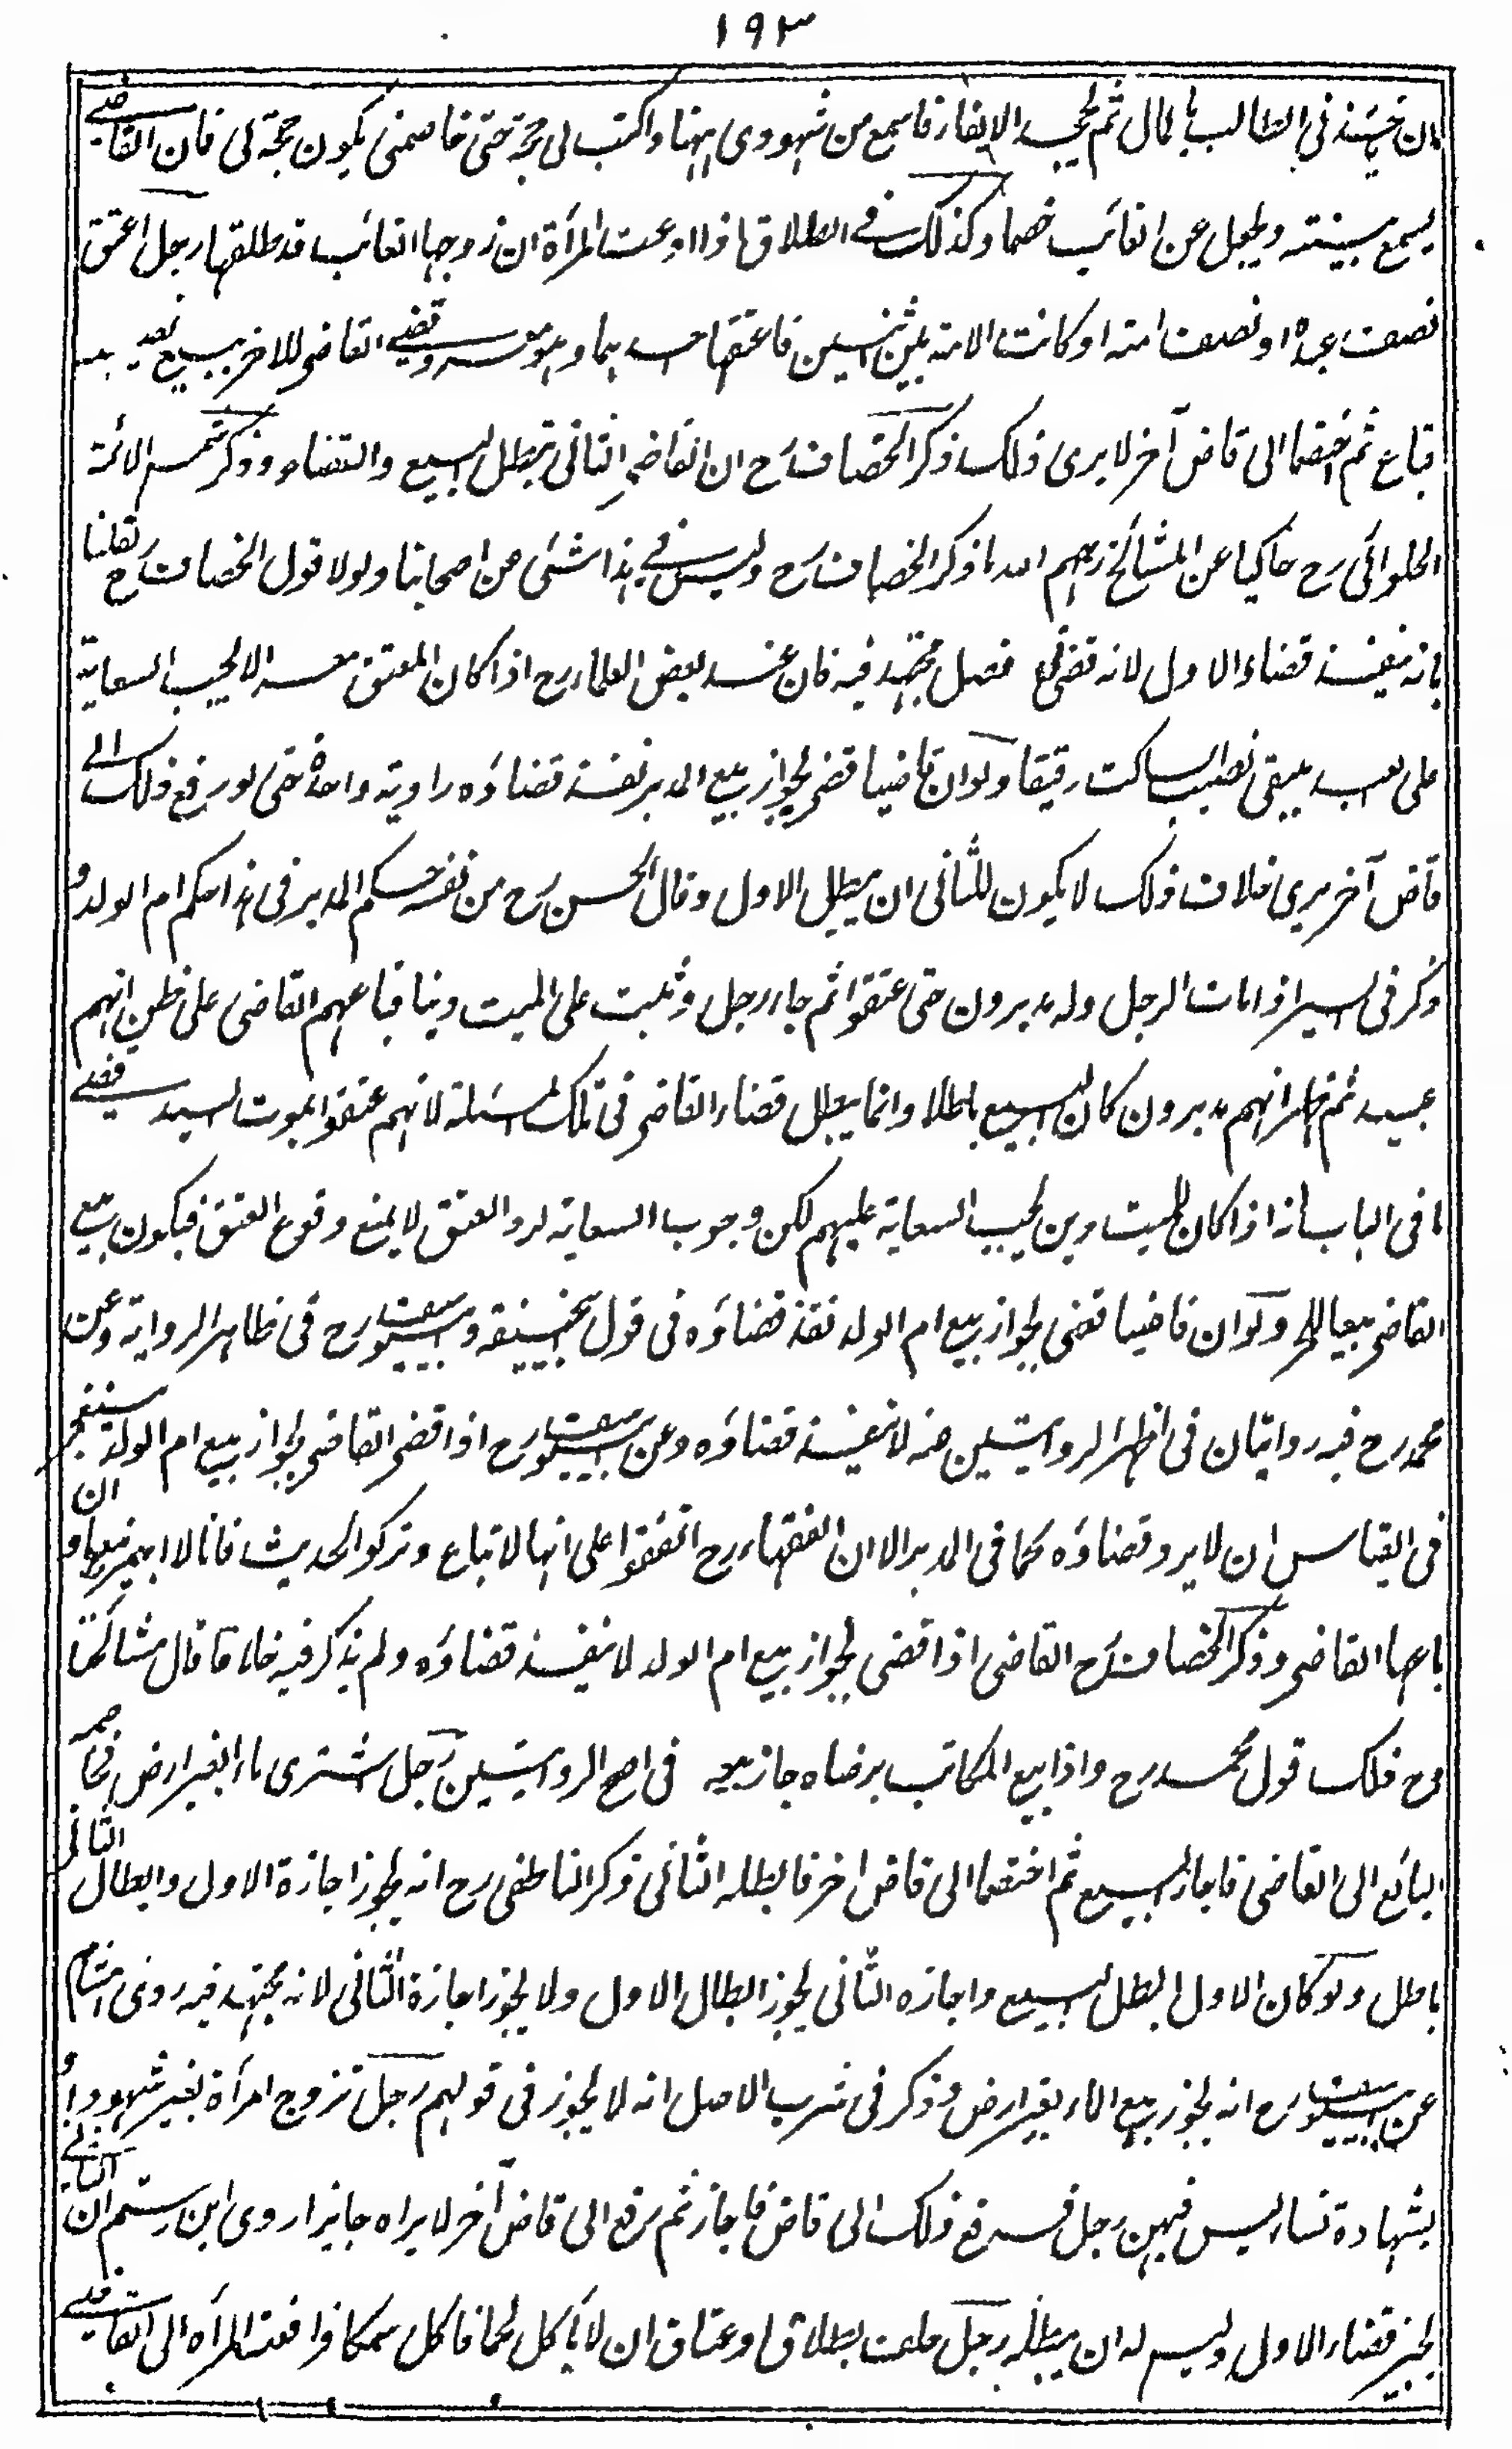 ١٩٣
ان خيبتنى الطالب بالمال ثم يجحد الايفاء فاسمع من شهودى ههنا واكتب لى حجة حتى خاصمنى يكون حجة لى فان القاضى
يسمع بينته ويجعل عن الغائب خصما وكذلك فى الطلاق اذا ادعت المرأة ان زوجها الغائب قد طلقها رجل اعتق
نصف عبده او نصف امته او كانت الامة بين اثنين فاعتقها احدهما وهو معسر وقضى القاضى للاخر ببيع نصيبه
فباع ثم اختصما الى قاض آخر لا يرى ذلك ذكر الخصاف رح ان القاضى الثانى يبطل البيع والقضاء وذكر شمس الائمة
الحلوائى رح حاكيا عن المشائخ رحمهم الله ما ذكر الخصاف رح وليس فى هذا شئ من اصحابنا ولولا قول الخصاف رح لقلنا
بانه ينفذ قضاء الاول لانه قضى فى فصل مجتهد فيه فان عند بعض العلماء رح اذا كان المعتق معسرا لا يجب السعاية
على العبد يبقى نصيب الساكت رقيقا ولو ان قاضيا قضى بجواز بيع المدبر نفذ قضاؤه رواية واحدة حتى لو رفع ذلك الى
قاض آخر يرى خلاف ذلك لا يكون للثانى ان يبطل الاول وقال الحسن رح من نفسه حكم المدبر فى هذا حكم ام الولد و
ذكر فى السير اذا مات الرجل وله مدبرون حتى عتقوا ثم جاء رجل وثبت على الميت دينا فباعهم القاضى على ظن انهم
عبيد ثم ظهر انهم مدبرون كان البيع باطلا وانما يبطل قضاء القاضى فى تلك المسئلة لانهم عتقوا بموت السيد قضى
ما فى الباب انه اذا كان للميت دين يجب السعاية عليهم لكن وجوب السعاية لرد العتق لا يمنع وقوع العتق فيكون بيع
القاضى بيعا للحر ولو ان قاضيا قضى بجواز بيع ام الولد نفذ قضاؤه فى قول ابيحنيفة وابييوسف رح فى ظاهر الرواية وعن
محمد رح فيه روايتان فى اظهر الروايتين عنه لا ينفذ قضاؤه وعن ابييوسف رح اذا قضى القاضى بجواز بيع ام الولد ينبغى ان
فى القياس ان لا يرد قضاؤه كما فى المدبر الا ان الفقهاء رح اتفقوا على انها لا تباع وتركوا الحديث فانا لا اجيز بيعها و
باعها القاضى وذكر الخصاف رح القاضى اذا قضى بجواز بيع ام الولد لا ينفذ قضاؤه ولم يذكر فيه خلافا قال مشائخنا
رح ذلك قول محمد رح واذا بيع المكاتب برضاه جاز بيعه فى اصح الروايتين رجل اشترى ماء بغير ارض فخاصمه
البائع الى القاضى فاجاز البيع ثم اختصما الى قاض اخر فابطله الثانى ذكر الناطفى رح انه يجوز اجازة الاول وابطال الثانى
باطل ولو كان الاول ابطل البيع واجازه الثانى يجوز ابطال الاول ولا يجوز اجازة الثانى لانه مجتهد فيه روى هشام
عن ابييوسف رح انه يجوز بيع الماء بغير ارض وذكر فى شرب الاصل انه لا يجوز فى قولهم رجل تزوج امرأة بغير شهود او
بشهادة نساء ليس فيهن رجل فرفع ذلك الى قاض فاجاز ثم رفع الى قاض آخر لا يراه جايزا روى ابن رستم ان الثانى
يجيز قضاء الاول وليس له ان يبطله رجل حلف بطلاق او عتاق ان لا يأكل لحما فاكل سمكا فرافعت المرأة الى القاضى